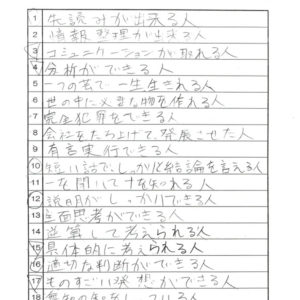 1 先読みが出来る人
2 情報整理が出来る人
3 コミュニケーションが取れる人
4 分析ができる人
5 一つの芸で一生生きれる人
6 世の中に必要な物を作れる人
7 完全犯罪をできる人
8 会社をたち上げて、発展させた人
9 有言実行できる人
10 短い話で、しっかり結論を言える人
11 一を聞いて十を知れる人
12 説明がしっかりできる人
13 全面思考ができる人
14 逆算して考えられる人
15 具体的に考えられる人
16 適切な判断ができる人
17 ものすごい発想ができる人
18